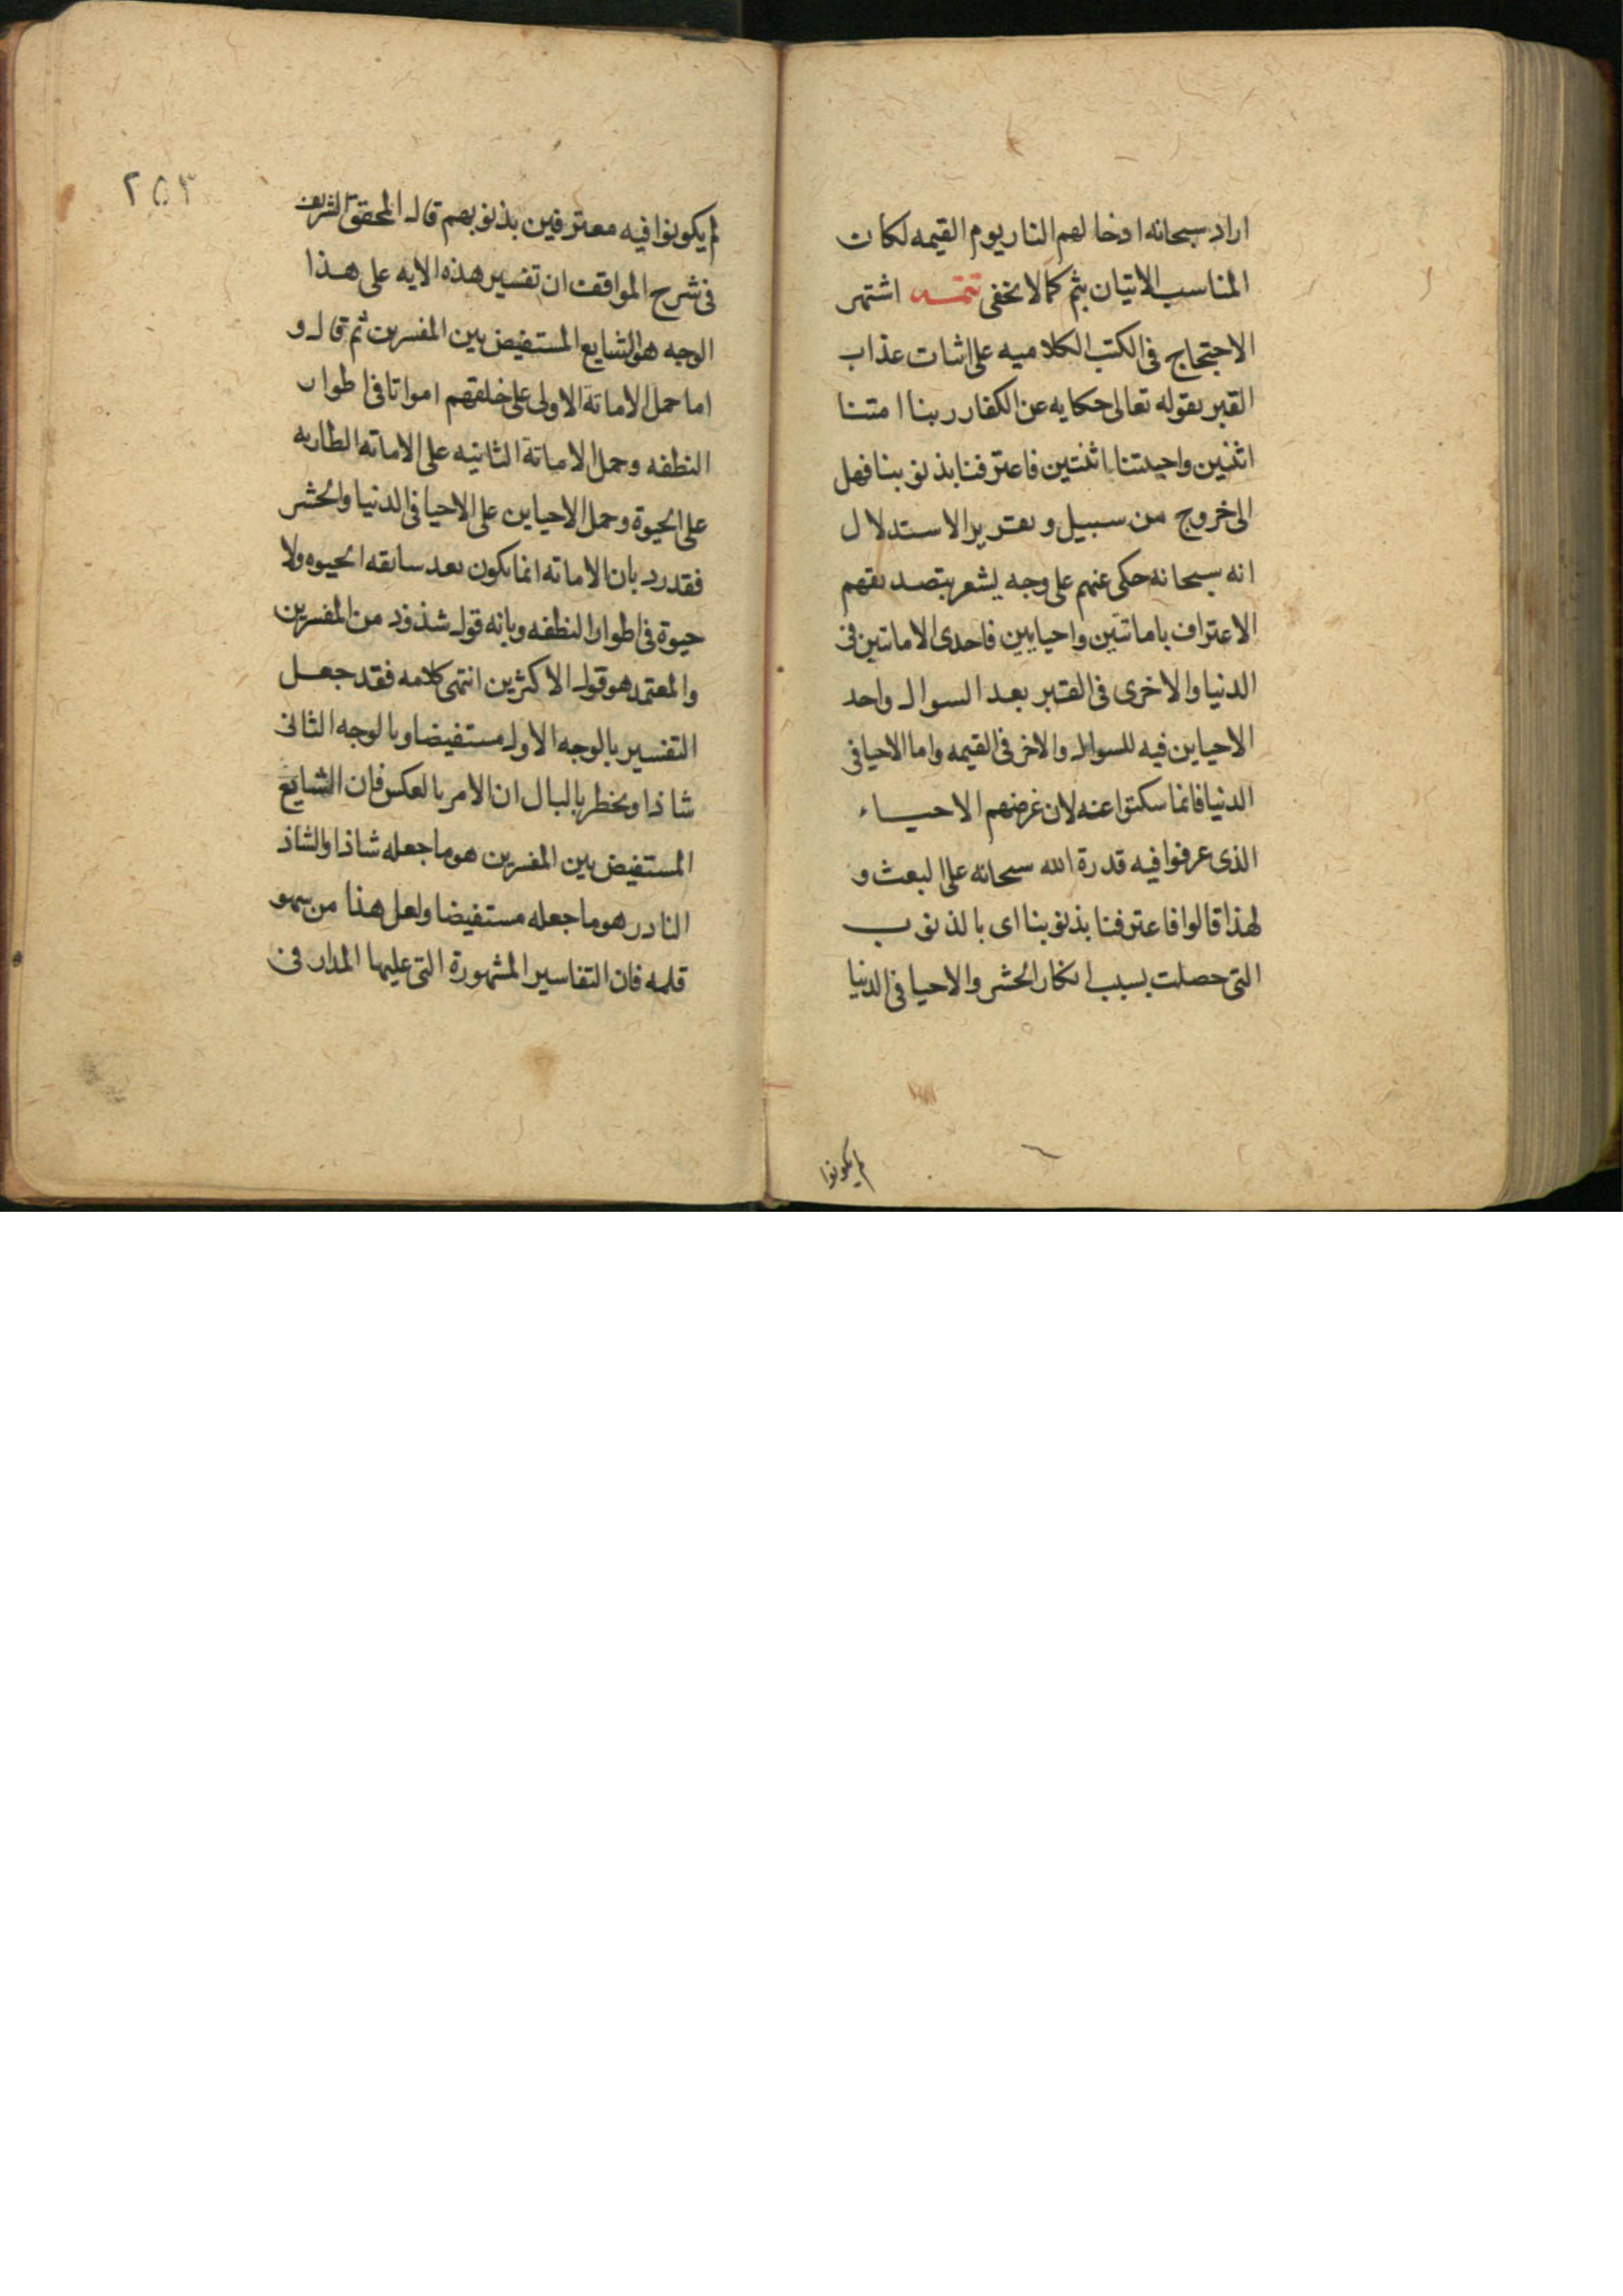 اراد سبحانه ادخالهم النار يوم القيمه لكان
المناسب الاتيان بثم كما لا يخفى تتمه اشتهر
الاحتجاج فى الكتب الكلاميه على اثبات عذاب
القبر بقوله تعالى حكايه عن الكفار ربنا امتنا
اثنتين واحييتنا اثنتين فاعترفنا بذنوبنا فهل
الى خروج من سبيل وتقرير الاستدلال
انه سبحانه حكى عنهم على وجه يشعر بتصديقهم
الاعتراف باماتتين واحيايين فاحدى الاماتتين فى
الدنيا والاخرى فى القبر بعد السوال واحد
الاحياين فيه للسوال والاخر فى القيمه واما الاحيا فى
الدنيا فانما سكتوا عنه لان غرضهم الاحياء
الذى عرفوا فيه قدرة الله سبحانه على البعث و
لهذا قالوا فاعترفنا بذنوبنا اى بالذنوب
التى حصلت بسبب انكار الحشر والاحيا فى الدنيا
لم يكونوا
٢٥٣
لم يكونوا فيه معترفين بذنوبهم قال المحقق الشريف
فى شرح المواقف ان تفسير هذه الايه على هذا
الوجه هو الشايع المستفيض بين المفسرين ثم قال و
اما حمل الاماتة الاولى على خلقهم امواتا فى اطوار
النطفه وحمل الاماتة الثانيه على الاماته الطاريه
على الحيوة وحمل الاحياين على الاحيا فى الدنيا والحشر
فقد رد بان الاماته انما يكون بعد سابقه الحيوه ولا
حيوة فى اطوار النطفه وبانه قول شذوذ من المفسرين
والمعتمد هو قول الاكثرين انتهى كلامه فقد جعل
التفسير بالوجه الاول مستفيضا وبالوجه الثانى
شاذا ويخطر بالبال ان الامر بالعكس فان الشايع
المستفيض بين المفسرين هو ما جعله شاذا والشاذ
النادر هو ما جعله مستفيضا ولعل هذا من سهو
قلمه فان التفاسير المشهورة التى عليها المدار فى